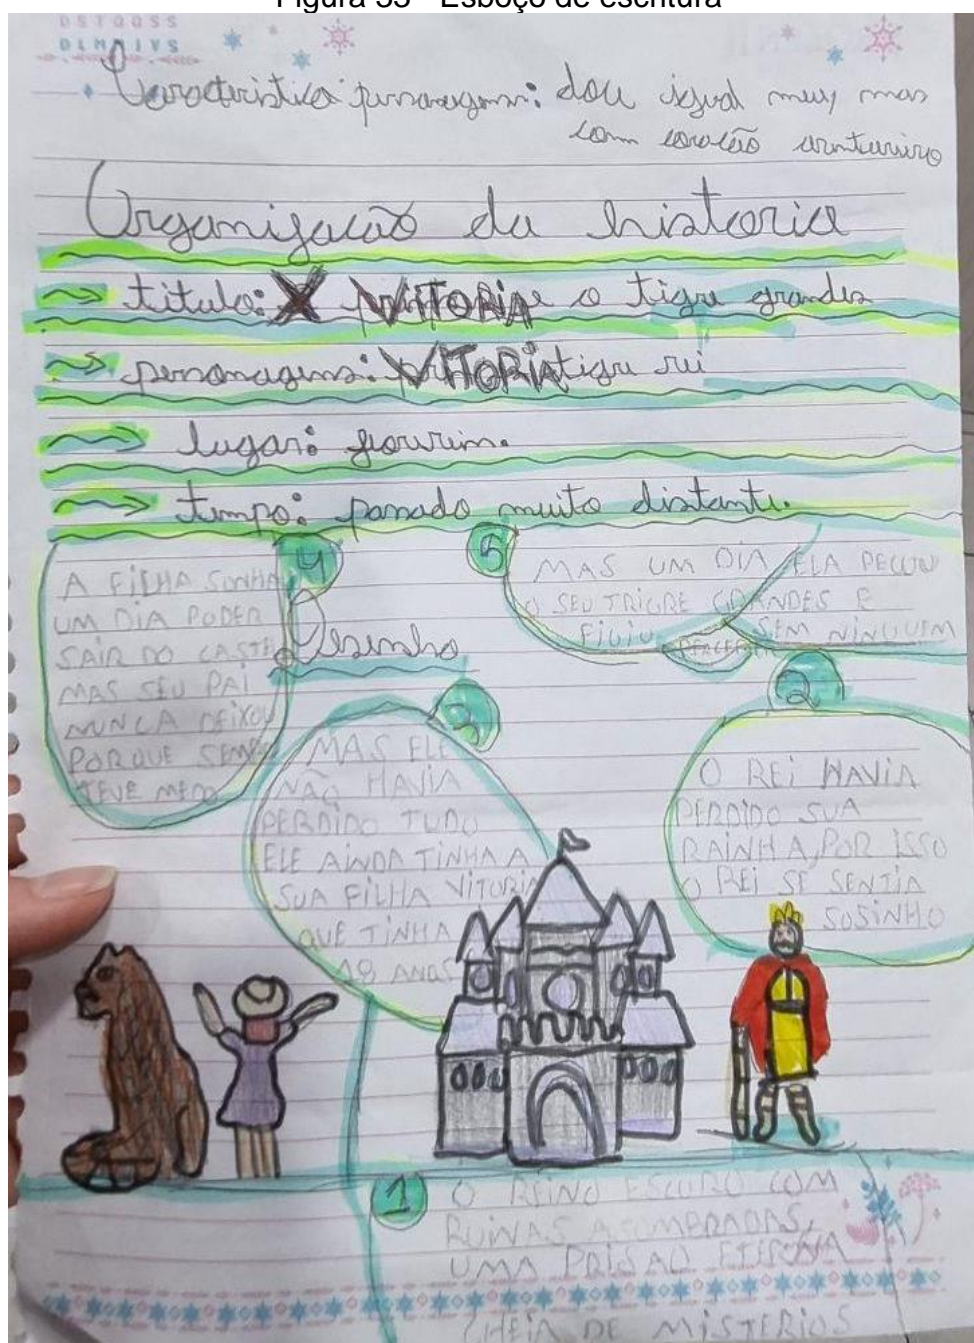 Figura 53 - Esboço de escritura
DSTQQSS
Caracteristica personagem: dou igual meuy mas
com coração aventureiro
Organização da historia
titulo: X VITORIA e o tigre grandes
personagens: VITORIA tigre rei
lugar:
tempo: passado muito distante.
4
A FILHA SONHA
UM DIA PODER
SAIR DO CASTE
MAS SEU PAI
NUNCA DEIXOU
PORQUE SEMP
TEVE MEDO
5
MAS UM DIA ELA
O SEU TRIGRE GRANDES E
FIGIU SEM NINGUEM
Desenho
3
MAS ELE
NÃO HAVIA
PERDIDO TUDO
ELE AINDA TINHA A
SUA FILHA VITORIA
QUE TINHA
18 ANOS
2
O REI HAVIA
PERDIDO SUA
RAINHA, POR ISSO
O REI SE SENTIA
SOSINHO
1
O REINO ESCURO COM
RUINAS ASOMBRADAS,
UMA PRISAU ETERNA
CHEIA DE MISTERIOS